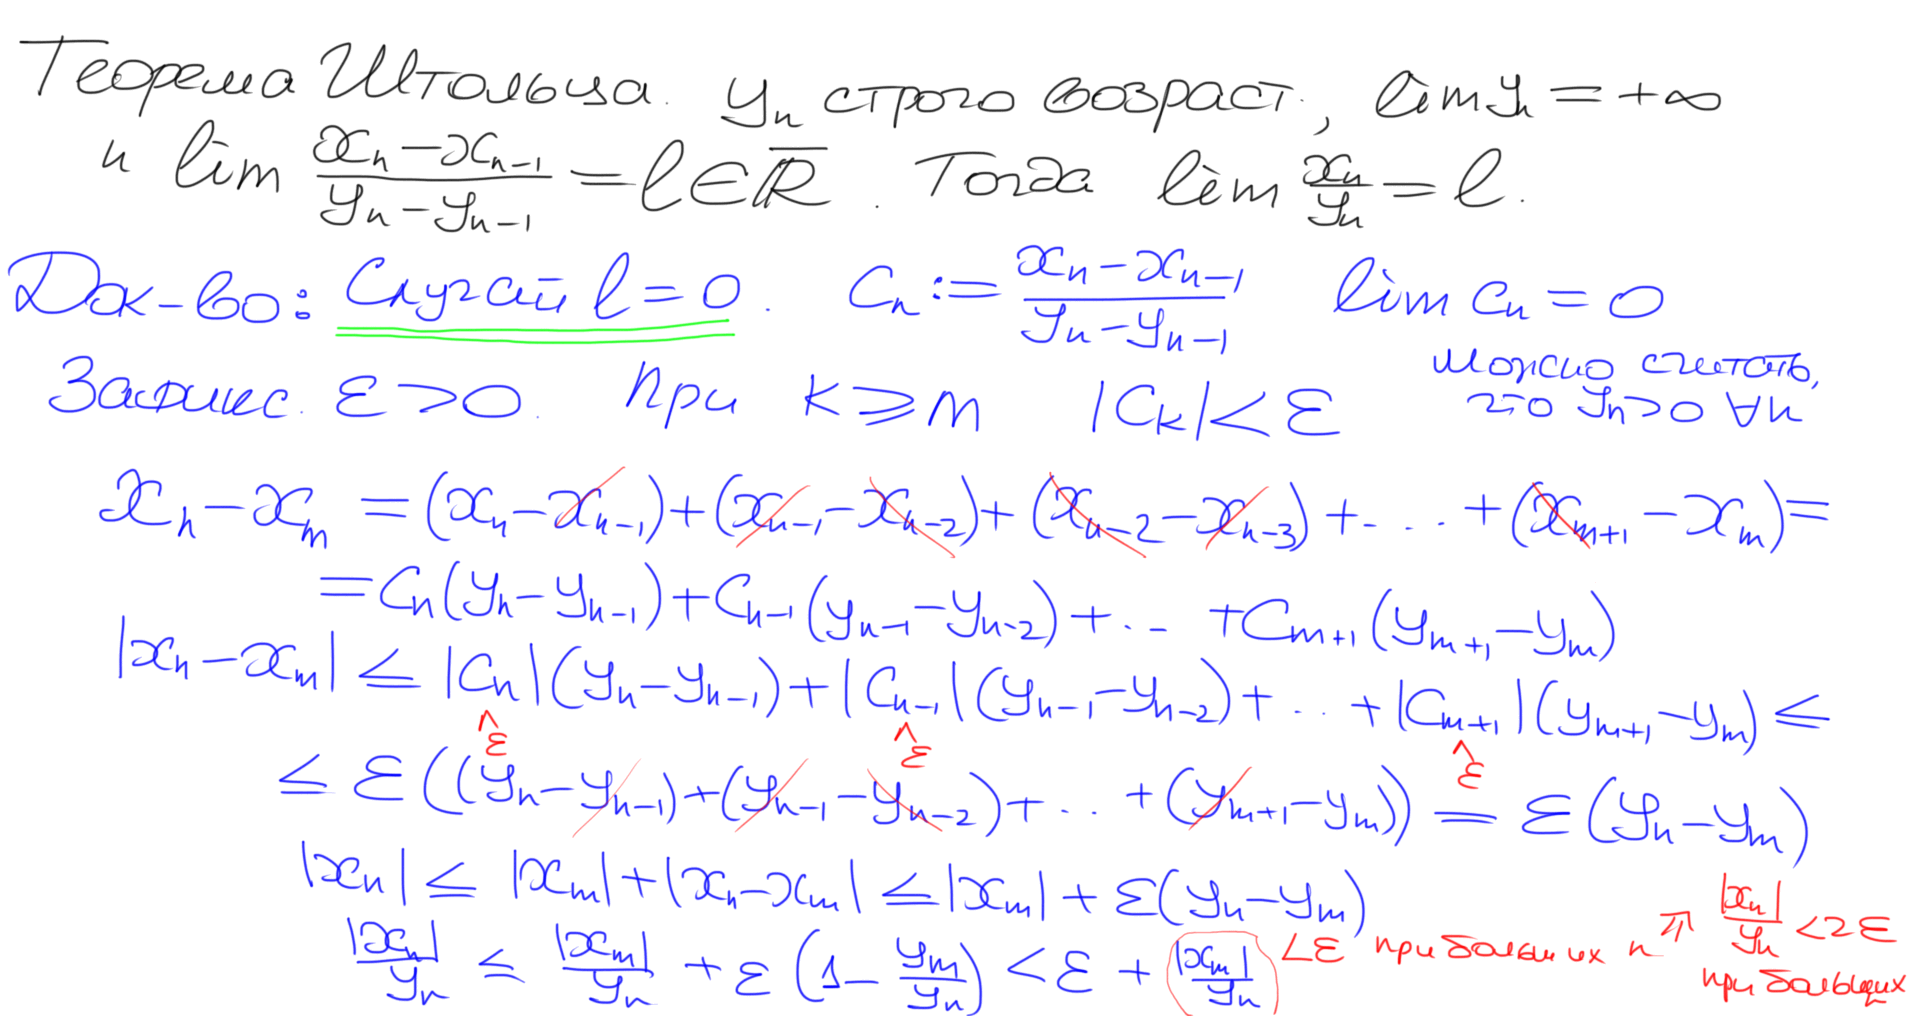 Теорема Штольца. yₙ строго возраст., lim yₙ = +∞
и lim (xₙ − xₙ₋₁)/(yₙ − yₙ₋₁) = l ∈ ℝ̅. Тогда lim xₙ/yₙ = l.
Док-во: Случай l = 0. Cₙ := (xₙ − xₙ₋₁)/(yₙ − yₙ₋₁) lim Cₙ = 0
можно считать,
что yₙ > 0 ∀n
Зафикс. ε > 0. при k ⩾ m |Cₖ| < ε
xₙ − xₘ = (xₙ − xₙ₋₁) + (xₙ₋₁ − xₙ₋₂) + (xₙ₋₂ − xₙ₋₃) + ... + (xₘ₊₁ − xₘ) =
= Cₙ(yₙ − yₙ₋₁) + Cₙ₋₁(yₙ₋₁ − yₙ₋₂) + ... + Cₘ₊₁(yₘ₊₁ − yₘ)
|xₙ − xₘ| ≤ |Cₙ|(yₙ − yₙ₋₁) + |Cₙ₋₁|(yₙ₋₁ − yₙ₋₂) + ... + |Cₘ₊₁|(yₘ₊₁ − yₘ) ≤
^ ε ^ ε ^ ε
≤ ε((yₙ − yₙ₋₁) + (yₙ₋₁ − yₙ₋₂) + ... + (yₘ₊₁ − yₘ)) = ε(yₙ − yₘ)
|xₙ| ≤ |xₘ| + |xₙ − xₘ| ≤ |xₘ| + ε(yₙ − yₘ)
|xₙ|/yₙ ≤ |xₘ|/yₙ + ε(1 − yₘ/yₙ) < ε + |xₘ|/yₙ < ε при больших n ⇒ |xₙ|/yₙ < 2ε
при больших